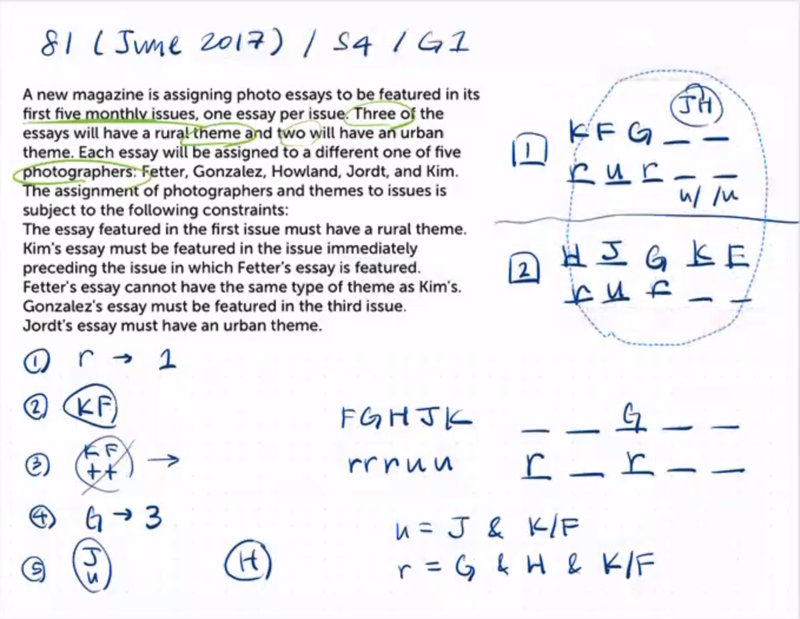 81 (June 2017) / S4 / G1
A new magazine is assigning photo essays to be featured in its
first five monthly issues, one essay per issue. Three of the
essays will have a rural theme and two will have an urban
theme. Each essay will be assigned to a different one of five
photographers: Fetter, Gonzalez, Howland, Jordt, and Kim.
The assignment of photographers and themes to issues is
subject to the following constraints:
The essay featured in the first issue must have a rural theme.
Kim's essay must be featured in the issue immediately
preceding the issue in which Fetter's essay is featured.
Fetter's essay cannot have the same type of theme as Kim's.
Gonzalez's essay must be featured in the third issue.
Jordt's essay must have an urban theme.
JH
1 K F G _ _
r u r _ _
u/ /u
2 H J G K F
r u r _ _
① r → 1
② KF
③ KF →
++
④ G → 3
⑤ J
u
H
FGHJK _ _ G _ _
rrruu r _ r _ _
u = J & K/F
r = G & H & K/F